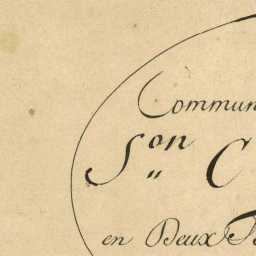 Commun
Son C
en Deux B